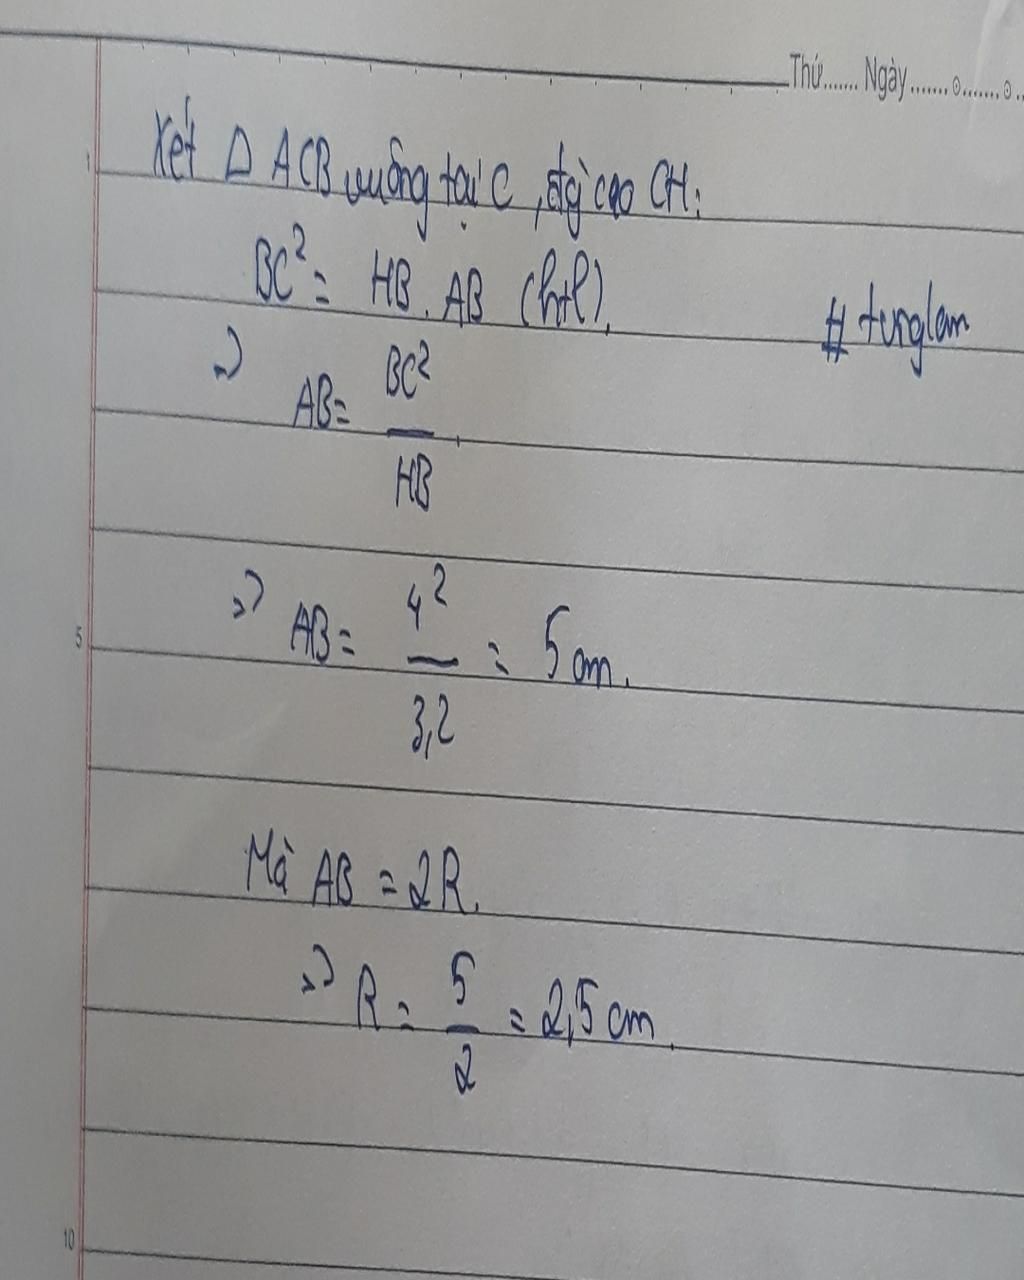 Thứ....... Ngày.......
Xét Δ ACB vuông tại C, đg cao CH:
BC² = HB . AB (htl).
# tunglam
=> AB = BC² / HB
=> AB = 4² / 3,2 = 5 cm.
5
Mà AB = 2R.
=> R = 5 / 2 = 2,5 cm.
10